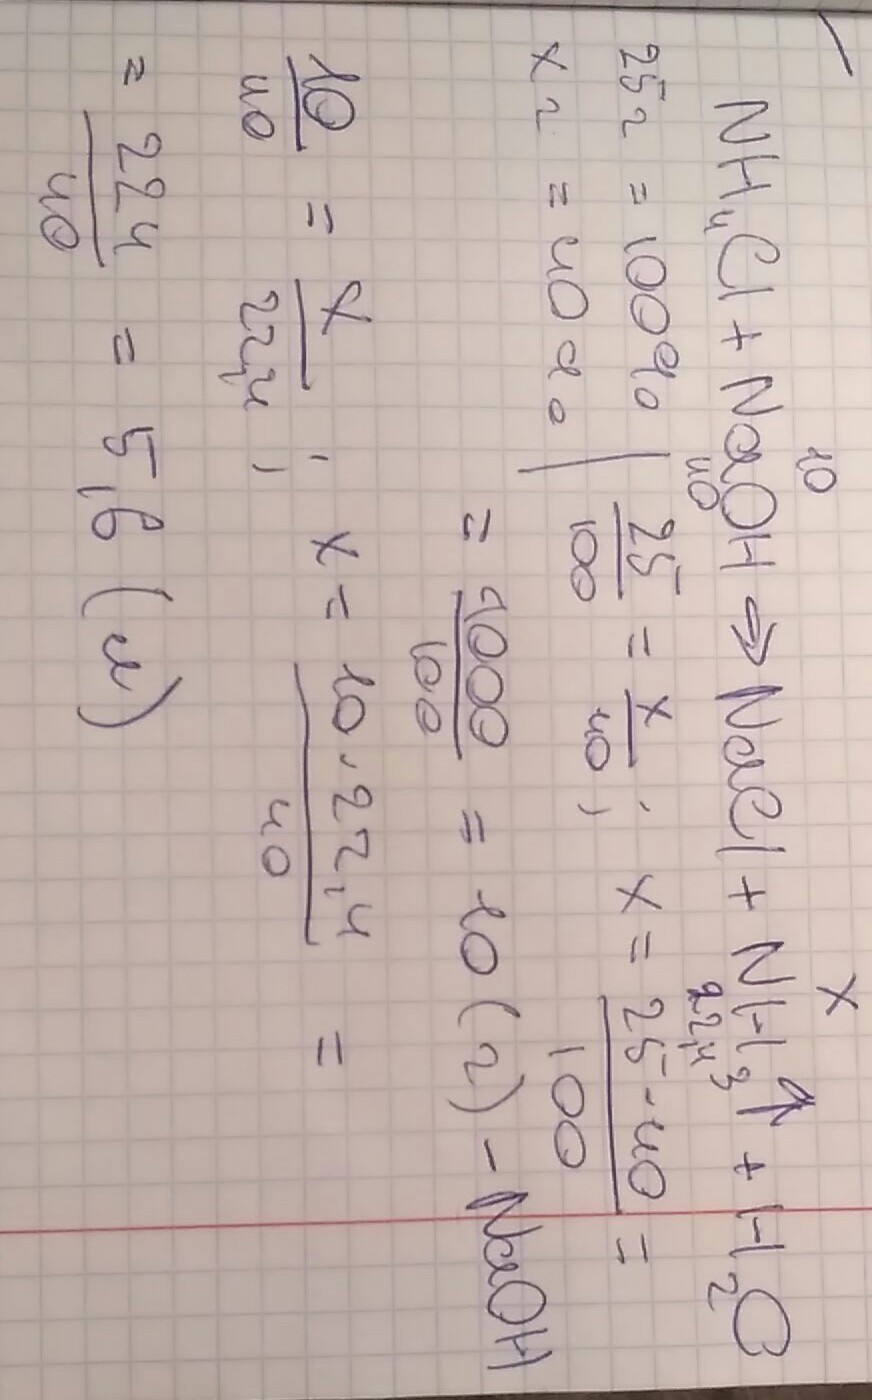 10 x
NH₄Cl + NaOH → NaCl + NH₃↑ + H₂O
40 22,4
25г = 100% | 25/100 = x/40; x = 25·40/100 =
xг = 40%
= 1000/100 = 10 (г) – NaOH
10/40 = x/22,4; x = 10·22,4/40 =
= 224/40 = 5,6 (л)